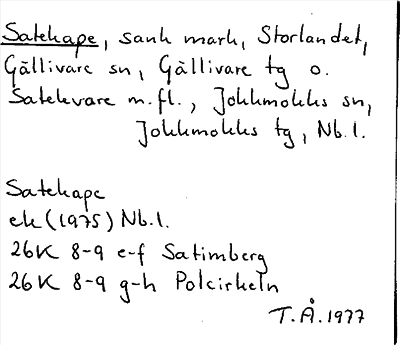 Satekape, sank mark, Storlandet,
Gällivare sn, Gällivare tg o.
Satekvare m.fl., Jokkmokks sn,
Jokkmokks tg, Nb.l.
Satekape
ek (1975) Nb.l.
26K 8-9 e-f Satimberg
26K 8-9 g-h Polcirkeln
T.Å. 1977